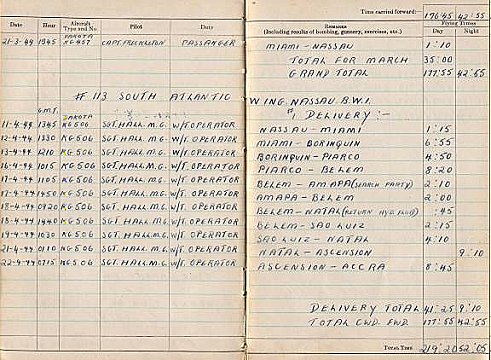 Time carried forward:— 176·45 42:55
Date Hour Aircraft Type and No. Pilot Duty
REMARKS (Including results of bombing, gunnery, exercises, etc.) Flying Times Day Night
21-3-44 1945 DAKOTA KG457 CAPT. FREEKLETON PASSANGER MIAMI - NASSAU 1:10
TOTAL FOR MARCH 35:00
GRAND TOTAL 177:55 42:55
# 113 SOUTH ATLANTIC WING NASSAU B.W.I.
G.M.T. # DELIVERY :-
11-4-44 1345 DAKOTA KG506 SGT. HALL. M.G. W/T. OPERATOR NASSAU - MIAMI 1:15
12-4-44 1330 KG506 SGT. HALL. M.G. W/T. OPERATOR MIAMI - BORINQUIN 6:55
13-4-44 1210 KG506 SGT. HALL. M.G. W/T. OPERATOR BORINQUIN - PIARCO 4:50
16-4-44 1015 KG506 SGT. HALL. M.G. W/T. OPERATOR PIARCO - BELEM 8:20
17-4-44 1105 KG506 SGT. HALL. M.G. W/T. OPERATOR BELEM - AMAPA (SEARCH PARTY) 2:10
17-4-44 1450 KG506 SGT. HALL. M.G. W/T. OPERATOR AMAPA - BELEM 2:00
18-4-44 0920 KG506 SGT. HALL. M.G. W/T. OPERATOR BELEM - NATAL (RETURN HYD. FLUID) :45
18-4-44 1440 KG506 SGT. HALL. M.G. W/T. OPERATOR BELEM - SAO LUIZ 2:15
19-4-44 1030 KG506 SGT. HALL. M.G. W/T. OPERATOR SAO LUIZ - NATAL 4:10
21-4-44 0110 KG506 SGT. HALL. M.G. W/T. OPERATOR NATAL - ASCENSION 9:10
22-4-44 0715 KG506 SGT. HALL. M.G. W/T. OPERATOR ASCENSION - ACCRA 8:45
DELIVERY TOTAL 41:25 9:10
TOTAL CWD. FWD. 177:55 42:55
TOTAL TIME 219:20 52:05